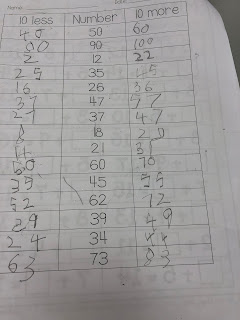 Name
10 less Number 10 more
40 50 60
80 90 100
2 12 22
25 35 45
16 26 36
37 47 57
27 37 47
8 18
11 21 31
50 60 70
35 45 55
52 62 72
29 39 49
24 34 44
63 73 83